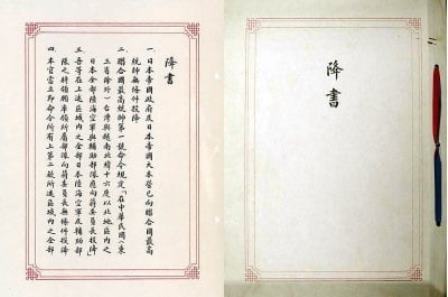 降書
一、日本帝國政府及日本帝國大本營已向聯合國最高
統帥無條件投降
二、聯合國最高統帥第一號命令規定「在中華民國(東
三省除外)台灣與越南北緯十六度以北地區內之
日本全部陸海空軍與輔助部隊應向蔣委員長投降」
三、吾等在上述區域內之全部日本陸海空軍及輔助部
隊之將領願率領所屬部隊向蔣委員長無條件投降
四、本官當立即命令所有上第二款所述區域內之全部
降書